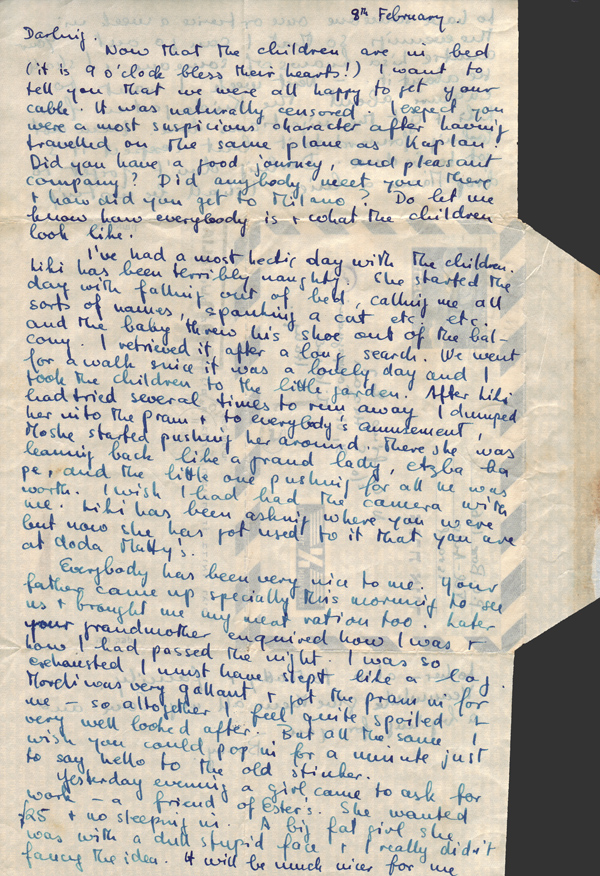 8th February.
Darling.
Now that the children are in bed
(it is 9 o'clock bless their hearts!) I want to
tell you that we were all happy to get your
cable. It was naturally censored. I expect you
were a most suspicious character after having
travelled on the same plane as Kaplan.
Did you have a good journey, and pleasant
company? Did anybody meet you there
+ how did you get to Milano? Do let me
know how everybody is + what the children
look like.
I've had a most hectic day with the children.
Kiki has been terribly naughty. She started the
day with falling out of bed, calling me all
sorts of names, spanking a cat etc. etc.
and the baby threw his shoe out of the bal-
cony. I retrieved it after a long search. We went
for a walk since it was a lovely day and I
took the children to the little garden. After Kiki
had tried several times to run away I dumped
her into the pram + to everybody's amusement,
Moshe started pushing her around. There she was
leaning back like a grand lady, etzba ba
pe, and the little one pushing for all he was
worth. I wish I had had the camera with
me. Kiki has been asking where you were
but now she has got used to it that you are
at doda Mutty's.
Everybody has been very nice to me. Your
father came up specially this morning to see
us + brought me my meat ration too. Later
your grandmother enquired how I was +
how I had passed the night. I was so
exhausted I must have slept like a log.
Mordi was very gallant + got the pram in for
me – so altogether I feel quite spoiled +
very well looked after. But all the same I
wish you could pop in for a minute just
to say hello to the old stinker.
Yesterday evening a girl came to ask for
work – a friend of Ester's. She wanted
£25 + no sleeping in. A big fat girl she
was with a dull stupid face + I really didn't
fancy the idea. It will be much nicer for me